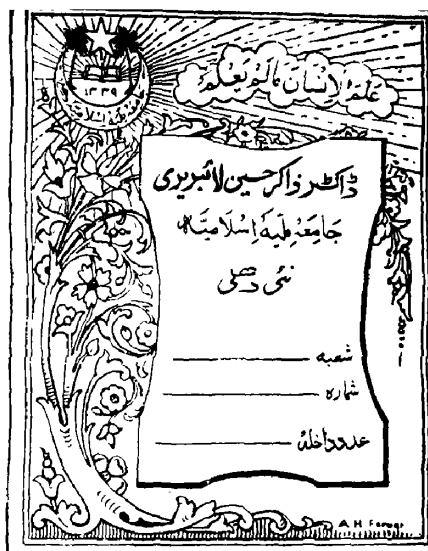 عَلَّمَ الْاِنْسَانَ مَا لَمْ يَعْلَمْ
۱۳۳۹
ڈاکٹر ذاکر حسین لائبریری
جَامِعَہ مِلّیہ اِسْلَامِیَہ
نئی دھلی
شعبہ
شمارہ
عدد داخلہ
A H Faruqi